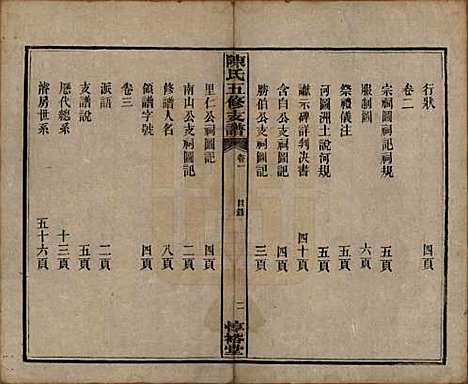 行狀 四頁
卷二
宗祠圖祠記 五頁
服制圖 六頁
祭禮儀注 五頁
河圖洲土說河規 五頁
讞示碑詳判决書 四十頁
含白公支祠圖記 二頁
勝伯公支祠圖記 三頁
陳氏五修支譜 卷一 目錄 二 惇裕堂
里仁公祠圖記 四頁
南山公支祠圖記 二頁
修譜人名 八頁
領譜字號 四頁
卷三
派語 二頁
支譜說 五頁
歷代總系 十三頁
濬房世系 五十六頁